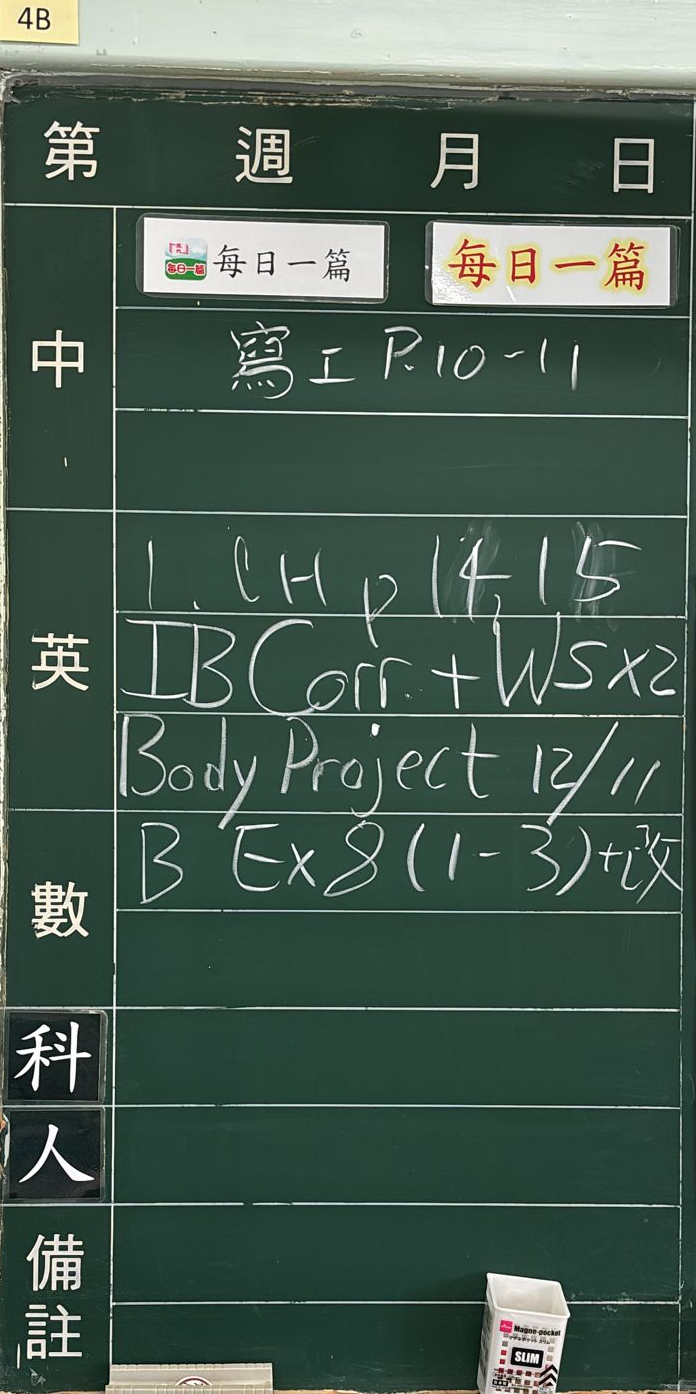 4B
第 週 月 日
每日一篇 每日一篇 每日一篇
中
寫工 P.10-11
1. CH p 14, 15
英
IB Corr. + WS x2
Body Project 12/11
B Ex 8 (1-3)+改
數
科
人
備註
Magne-pocket
SLIM